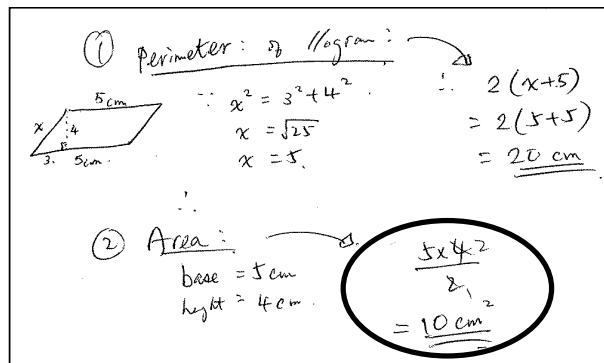 ① Perimeter: of //ogram:
5cm
x
4
3. 5cm.
∵ x² = 3² + 4².
x = √25
x = 5.
∴ 2(x+5)
= 2(5+5)
= 20 cm
∴
② Area:
base = 5cm
height = 4cm.
5x4 2
2 1
= 10 cm²